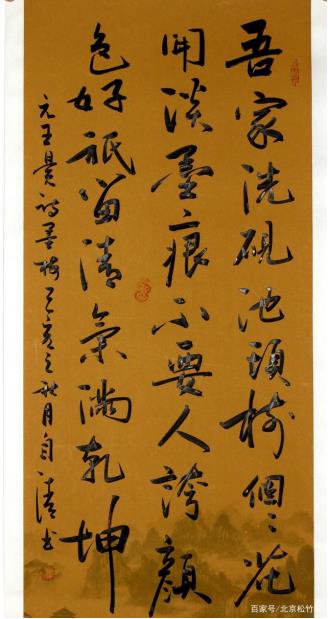 吾家洗砚池頭樹個〻花
開淡墨痕不要人誇顔
色好祇留清氣滿乾坤
元王冕詩墨梅己亥之秋月自清書
百家号/北京松竹